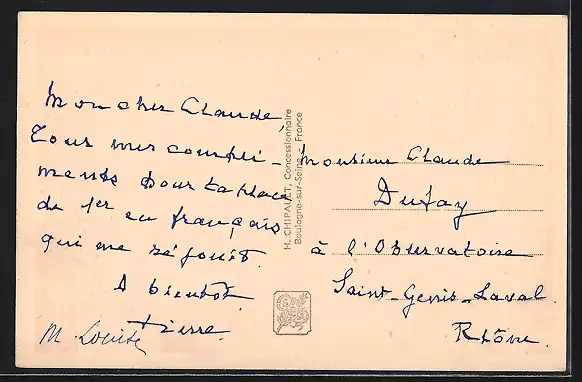 Mon cher Claude,
Tous mes compli-
ments pour ta place
de 1er en français
qui me réjouit.
A bientôt.
Pierre.
M. Louise
H. CHIPAULT, Concessionnaire
Boulogne-sur-Seine, France
Monsieur Claude
Dufay
à l'Observatoire
Saint-Genis-Laval.
Rhône.